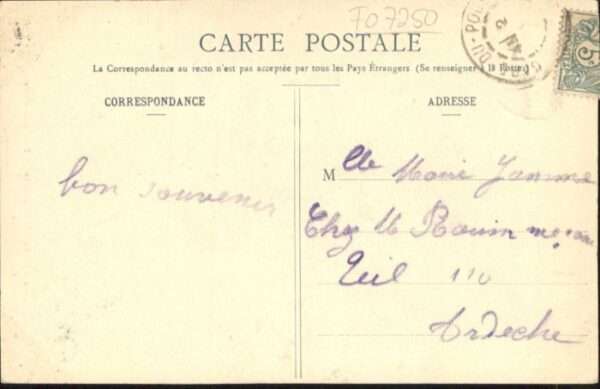 FO 7250
CARTE POSTALE
La Correspondance au recto n'est pas acceptée par tous les Pays Étrangers (Se renseigner à la Poste)
CORRESPONDANCE
ADRESSE
bon souvenir
Mlle Marie Jamme
Chez M Rouim
Teil
Ardeche